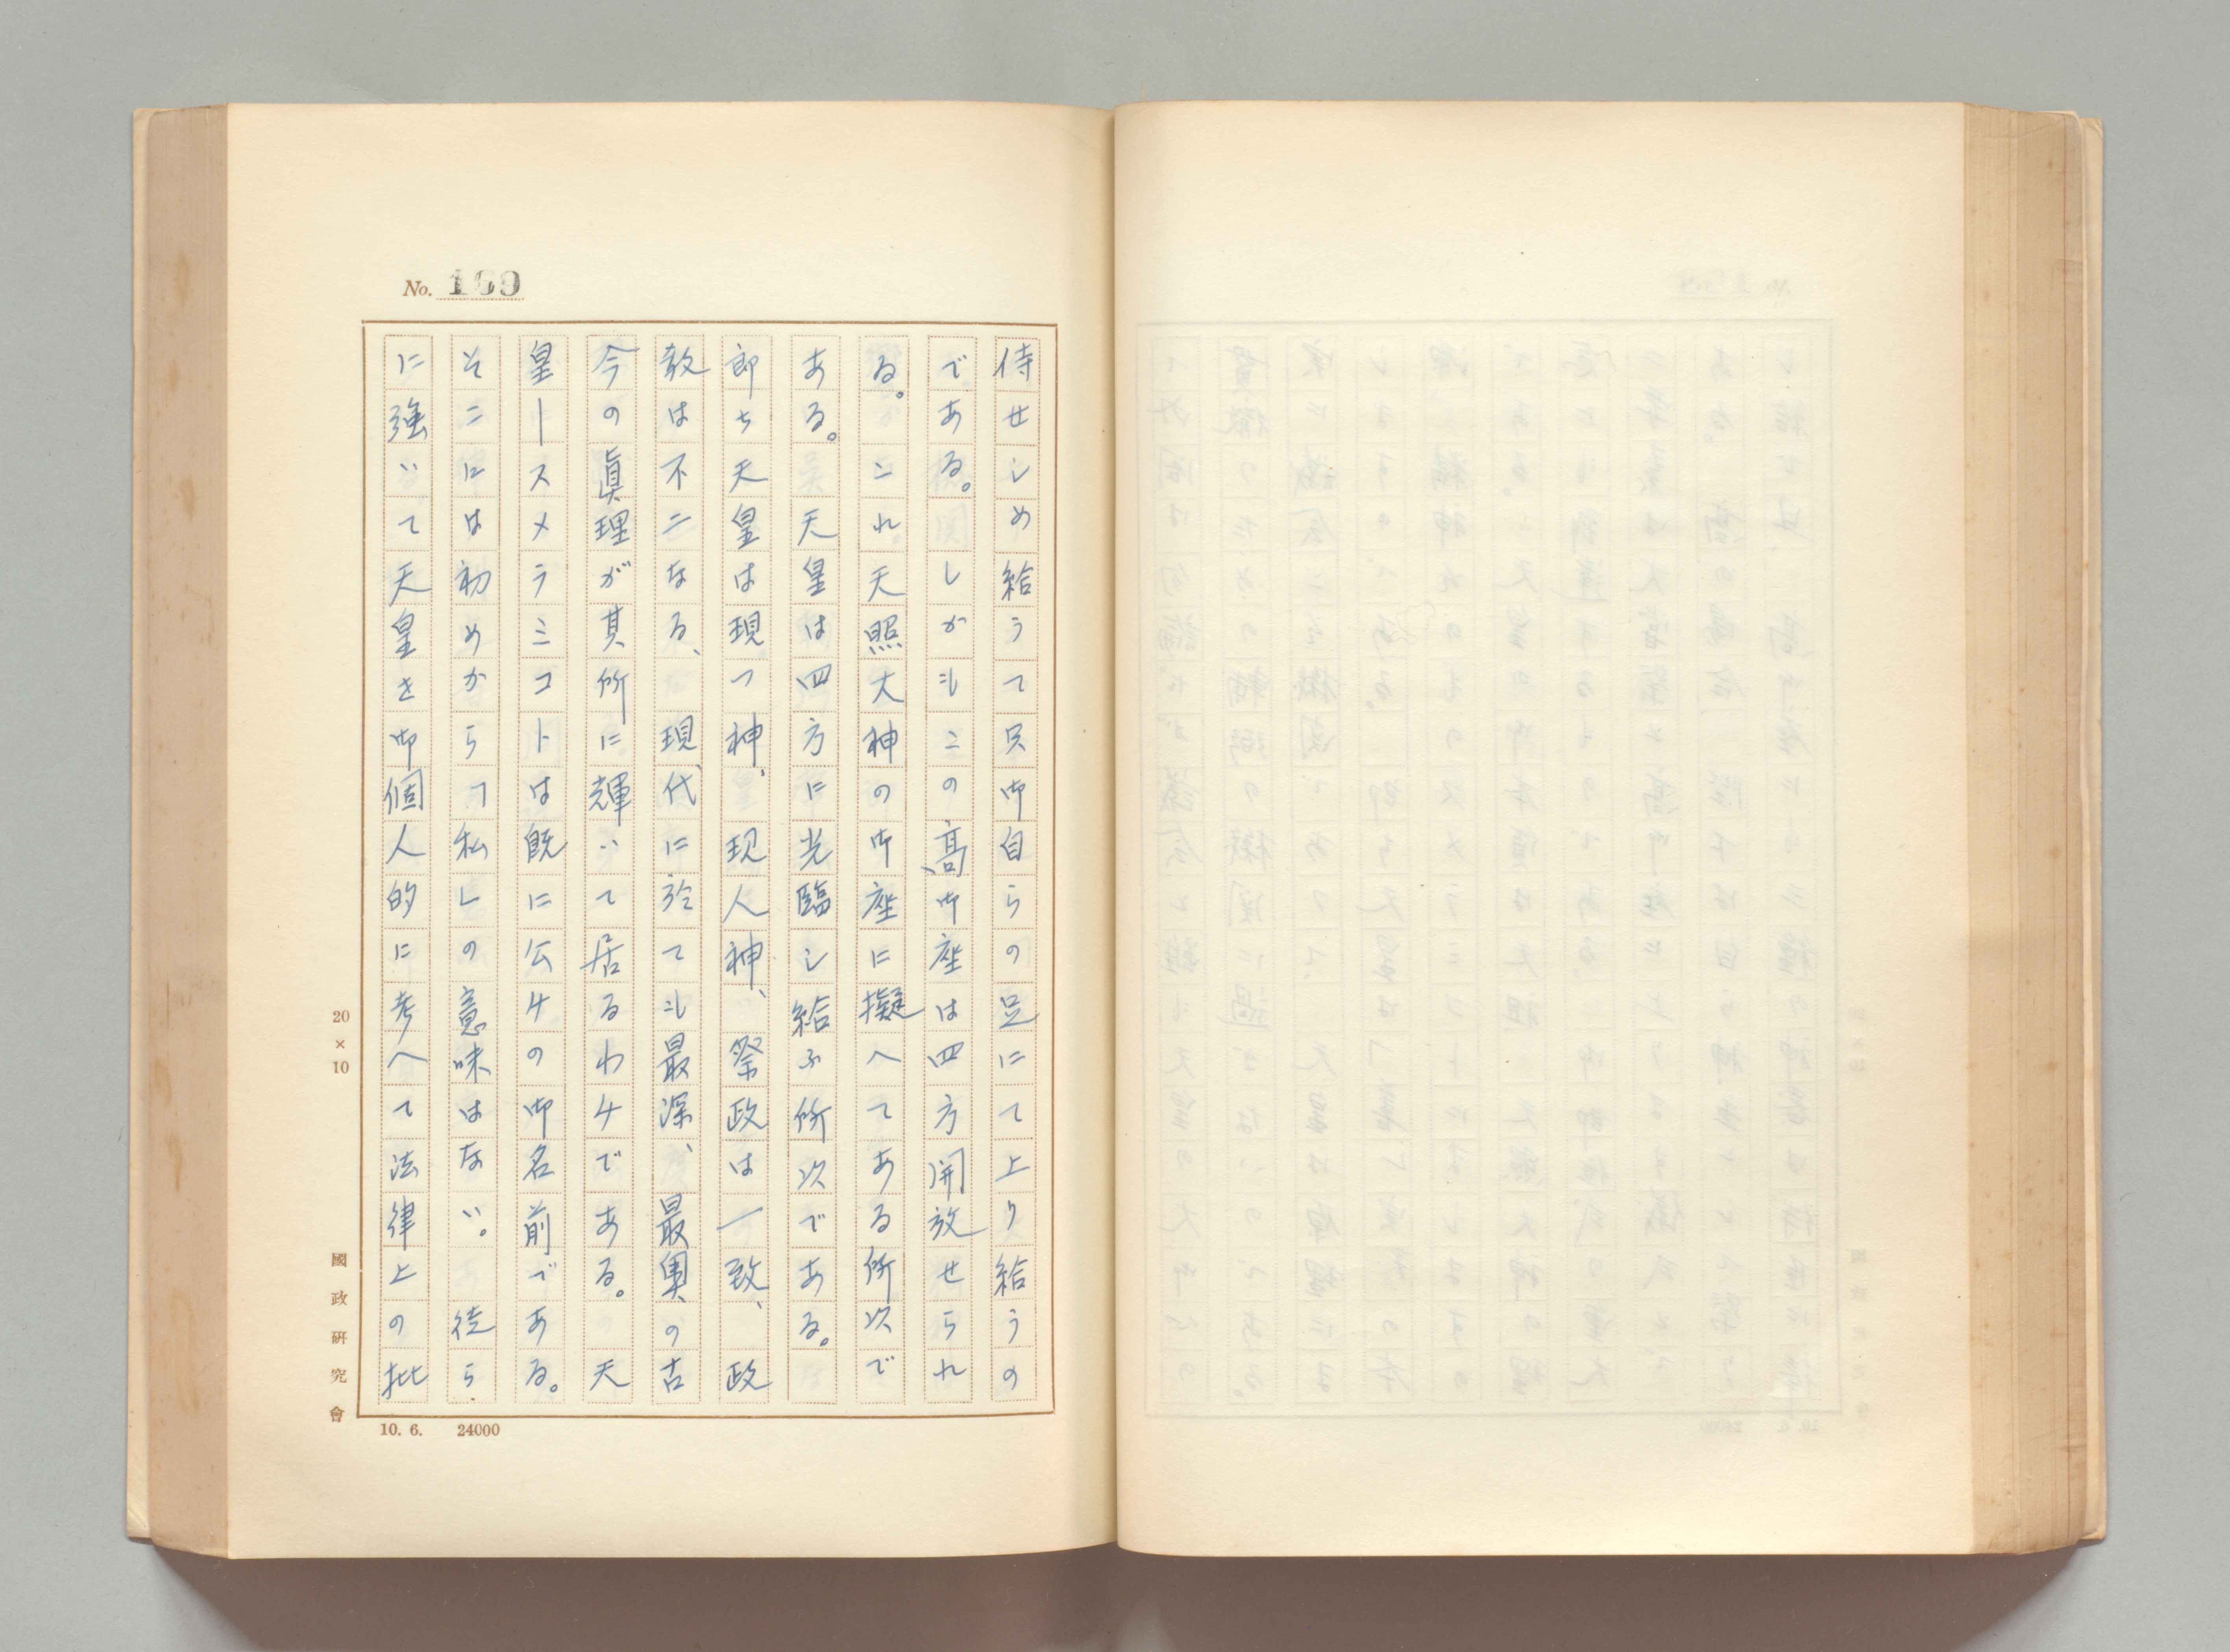 No. 169
侍せしめ給うて只御自らの足にて上り給うの
である。しかもこの高御座は四方開放せられ
る。これ天照大神の御座に擬へてある所以で
ある。天皇は四方に光臨し給ふ所以である。
即ち天皇は現つ神、現人神、祭政は一致、政
教は不二なる、現代に於ても最深、最奥の古
今の眞理が其所に輝いて居るわけである。天
皇―スメラミコトは既に公ケの御名前である。
そこには初めから「私」の意味はない。徒ら
に強いて天皇を御個人的に考へて法律上の批
20×10
國政研究會
10. 6. 24000